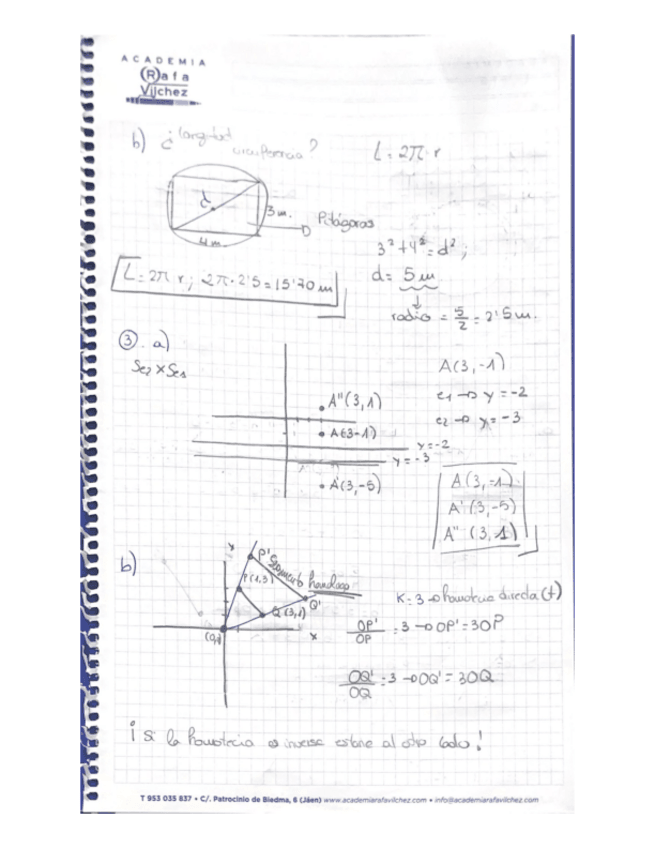 ACADEMIA
(R)afa
Vílchez
b) ¿longitud circunferencia?
L = 2π·r
d
3 m.
4 m
Pitágoras
3² + 4² = d²;
d = 5 m
L = 2π r; 2π·2'5 = 15'70 m
radio = 5/2 = 2'5 m.
③. a)
Se2 x Se1
A(3,-1)
e1 → y = -2
e2 → y = -3
A''(3,1)
A(3-1)
y=-2
y=-3
A'(3,-5)
A(3,-1)
A'(3,-5)
A''(3,1)
b)
y
P'
Segmento homólogo
P(1,3)
Q'
Q(3,1)
x
K = 3 → homotecia directa (+)
OP'/OP = 3 → OP' = 3OP
OQ'/OQ = 3 → OQ' = 3OQ
¡Si la homotecia es inversa estaré al otro lado!
T 953 035 837 • C/. Patrocinio de Biedma, 6 (Jáen) www.academiarafavilchez.com • info@academiarafavilchez.com